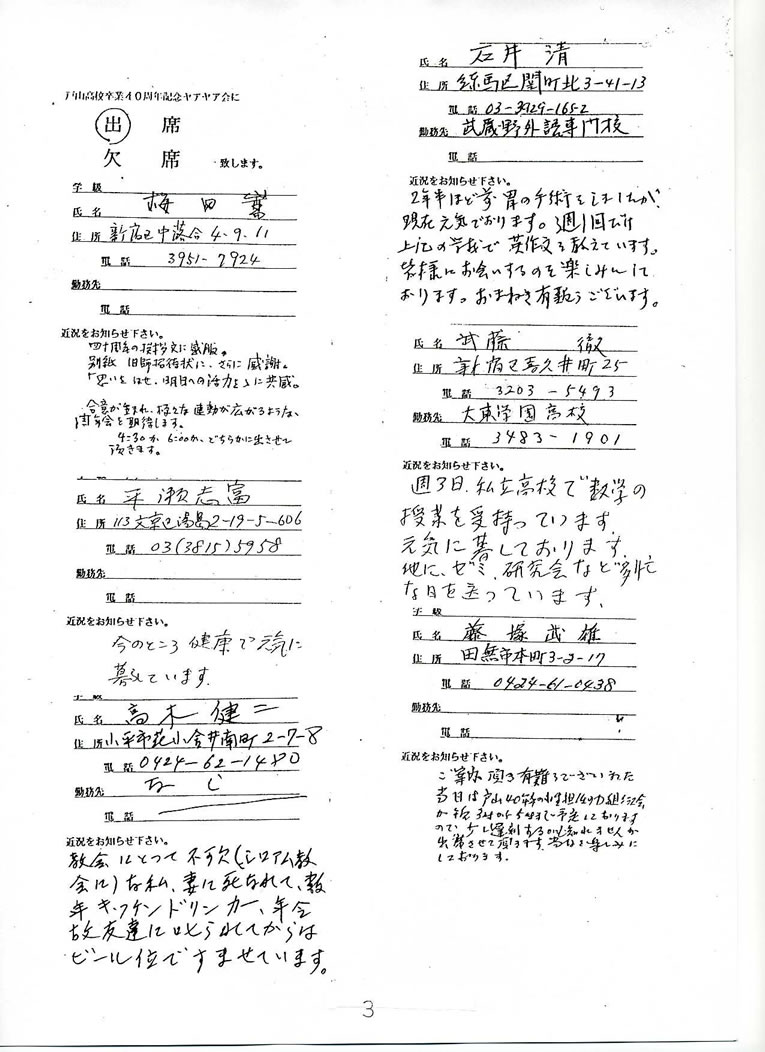 戸山高校卒業40周年記念ヤアヤア会に
出席
欠席 致します。
学級
氏名 梅田
住所 新宿区中落合4.9.11
電話 3951-7924
勤務先
電話
近況をお知らせ下さい。
四十周年の挨拶文に感服。
別紙 旧師招待状に、さらに感謝。
思いをはせ、明日への活力とに共感。
合意が生まれ、様々な運動が広がるような、
同年会を期待します。
4:30か、6:00か、どちらかに出させて
頂きます。
氏名 平瀬志富
住所 113文京区湯島2-19-5-606
電話 03(3815)5958
勤務先
電話
近況をお知らせ下さい。
今のところ健康で元気に
暮しています.
氏名 高木健二
住所 小平市花小金井南町2-7-8
電話 0424-62-1480
勤務先 なし
電話
近況をお知らせ下さい。
教会にとって不可欠(シロアム教
会に)な私、妻に死なれて、数
年キッチンドリンカー、年令
故友達に叱られてからは
ビール位ですませています。
氏名 石井清
住所 練馬区関町北3-41-13
電話 03-3929-1652
勤務先 武蔵野外語専門校
電話
近況をお知らせ下さい。
2年半ほど前 胃の手術をしましたが、
現在元気でおります。週1回だけ
上記の学校で 英作文を教えています。
皆様にお会いするのを楽しみにして
おります。おまねき有難うございます。
氏名 武藤徹
住所 新宿区喜久井町25
電話 3203-5493
勤務先 大東学園高校
電話 3483-1901
近況をお知らせ下さい。
週3日.私立高校で数学の
授業を受持っています.
元気に暮しております.
他に、ゼミ、研究会など多忙
な日を送っています.
学級
氏名 藤塚武雄
住所 田無市本町3-2-17
電話 0424-61-0438
勤務先
電話
近況をお知らせ下さい。
ご案内頂き有難うございました
当日は戸山40年の
ので、少し遅刻するかも知れませんが
出席させて頂きます。当日を楽しみに
しております。
3